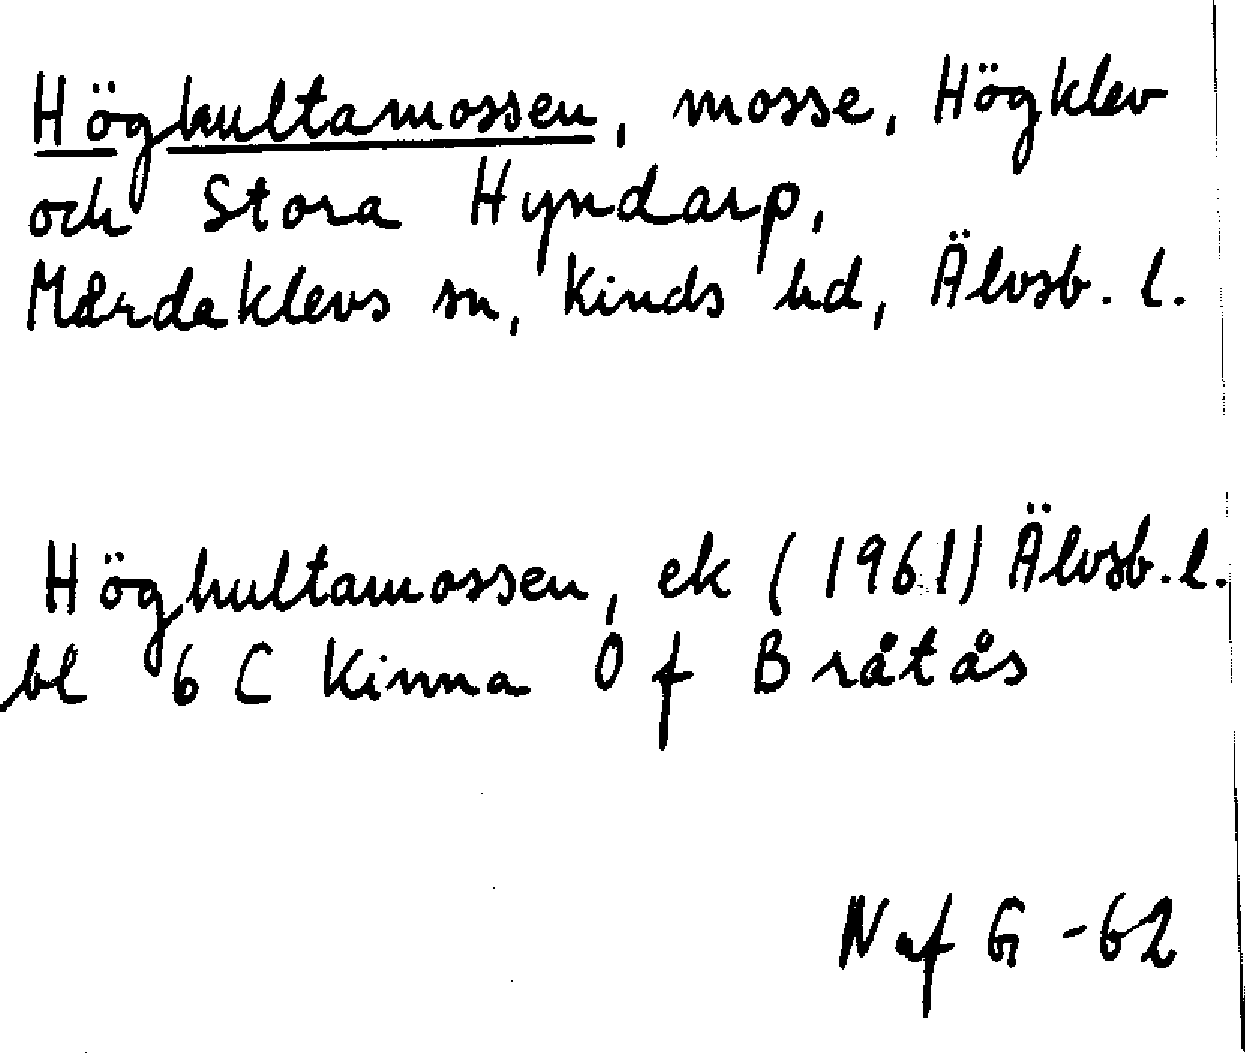 Höghultamossen, mosse, Högklev
och Stora Hyndarp,
Mårdaklevs sn, Kinds hd, Älvsb. l.
Höghultamossen, ek (1961) Älvsb. l.
bl 6 C Kinna O f Bråtås
N af G -62